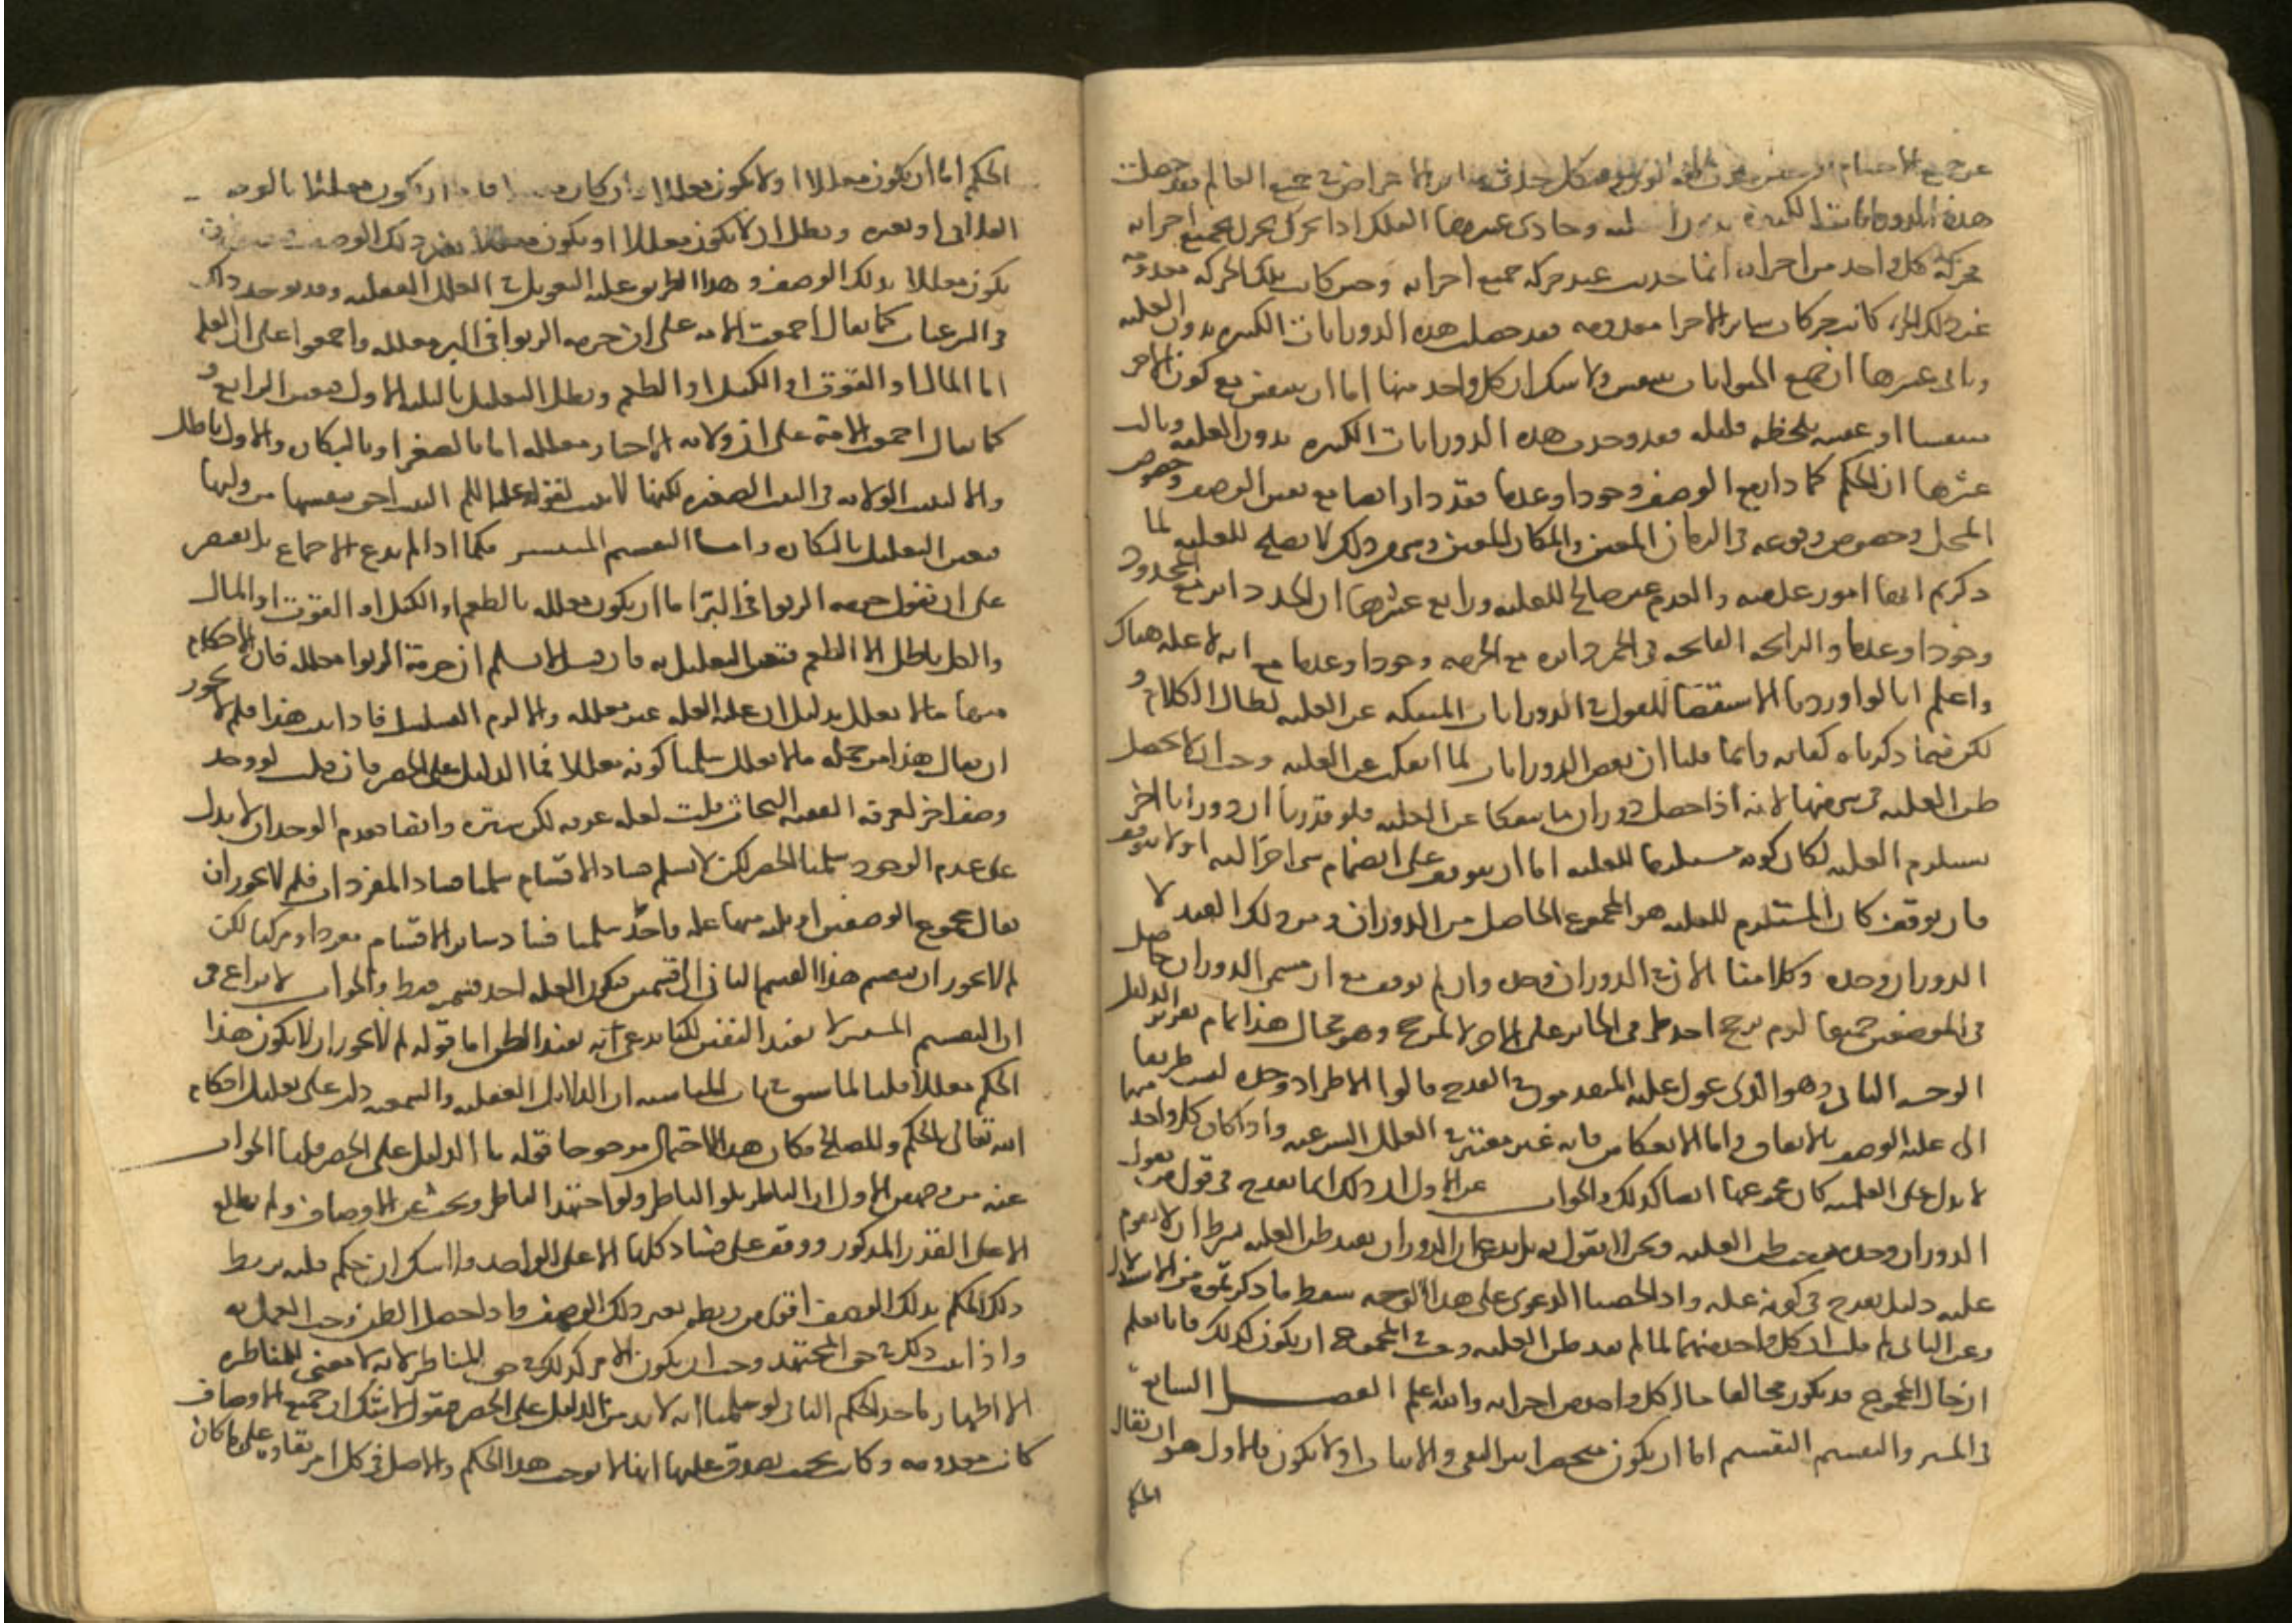 هذه الدورانات الكثيرة بدون العلية وحادي عشرها الفلك اذا تحرك تحرك بجميع اجزائه
فحركة كل واحد من اجزائه انما حدثت عند حركة جميع اجزائه وحين كانت تلك الحركة معدومة
عن ذلك الجزء كانت حركات سائر الاجزا معدومة فقد حصلت هذه الدورانات الكثيرة بدون العلية
وثاني عشرها ان جميع الحيوانات تتنفس ولا شك ان كل واحد منها اما ان يتنفس مع كون الاخر
متنفسا او عقيبه بلحظة قليلة فقد وجدت هذه الدورانات الكثيرة بدون العلية وثالث
عشرها ان الحكم كما دار مع الوصف وجودا وعدما فقد دار ايضا مع تعين الوصف وخصوص
المحل وخصوص وقوعه في الزمان المعين والمكان المعين وشي من ذلك لا يصلح للعلية لما
ذكرتم انها امور عدمية والعدم غير صالح للعلية ورابع عشرها ان الحد دائر مع المحدود
وجودا وعدما والرائحة الفائحة في الخمر دائرة مع الحرمة وجودا وعدما مع انه لا علة هناك
واعلم انا لو اوردنا الاستقصا للقول في الدورانات المنفكة عن العلية لطال الكلام و
لكن فيما ذكرناه كفاية وانما قلنا ان بعض الدورانات لما انفك عن العلية وجب ان لا يحصل
ظن العلية في شي منها لانه اذا حصل دوران ما منفكا عن العلية فلو قدرنا ان دورانا اخر
يستلزم العلية لكان كونه مستلزما للعلية اما ان يتوقف على انضمام شي اخر اليه او لا يتوقف
فان توقف كان المستلزم للعلية هو المجموع الحاصل من الدوران ومن ذلك القيد لا
الدوران وحده وكلامنا الان في الدوران وحده وان لم يتوقف مع ان مسمى الدوران حاصل
في الموضعين جميعا لزم ترجح احد طرفي الجائز على الاخر لا لمرجح وهو محال هذا تمام تقرير الدليل
الوجه الثاني وهو الذي عول عليه المتقدمون في القدح قالوا الاطراد وحده ليس طريقا
الى علية الوصف بالاتفاق واما الانعكاس فانه غير معتبر في العلل الشرعية واذا كان كل واحد منهما
لا يدل على العلية كان مجموعهما ايضا كذلك والجواب عن الاول ان ذلك انما يقدح في قول من يقول
الدوران وحده يوجب ظن العلية ونحن لا نقول به بل ندعي ان الدوران يفيد ظن العلية بشرط ان لا يقوم
عليه دليل يقدح في كونه علة واذا لخصنا الدعوى على هذا الوجه سقط ما ذكرتموه من الاستدلال
وعن الثاني لم قلت ان كل واحد منهما لما لم يفد ظن العلية وجب في المجموع ان يكون كذلك فانا نعلم
ان حال المجموع قد يكون مخالفا حال كل واحد من اجزائه والله اعلم الفصل السابع
في السبر والتقسيم التقسيم اما ان يكون منحصرا بين النفي والاثبات او لا يكون فالاول هو ان يقال
الحكم
الحكم اما ان يكون معللا او لا يكون معللا فان كان معللا فاما ان يكون معللا بالوصف
الفلاني او بغيره وبطل ان لا يكون معللا او يكون معللا بغير ذلك الوصف فتعين ان
يكون معللا بذلك الوصف وهذا الطريق عليه التعويل في العلل العقلية وقد يوجد ذلك
في الشرعيات كما يقال اجمعت الامة على ان حرمة الربوا في البر معللة واجمعوا على ان العلة
اما المال او القوت او الكيل او الطعم وبطل التعليل بالثلثة الاول فتعين الرابع و
كما يقال اجمعت الامة على ان ولاية الاجبار معللة اما بالصغر او بالبكارة والاول باطل
والا لثبتت الولاية في الثيب الصغيرة لكنها لا تثبت لقوله عليه السلم الثيب احق بنفسها من وليها
فتعين التعليل بالبكارة واما التقسيم المنتشر فكما اذا لم ندع الاجماع بل نقتصر
على ان نقول حرمة الربوا في البر اما ان يكون معللة بالطعم او الكيل او القوت او المال
والكل باطل الا الطعم فتعين التعليل به فان قيل لا نسلم ان حرمة الربوا معللة فان الاحكام
منها ما لا يعلل بدليل ان علية العلة غير معللة والا لزم التسلسل فاذا ثبت هذا فلم لا يجوز
ان يقال هذا من جملة ما لا يعلل سلمنا كونه معللا فما الدليل على الحصر فان قلت لو وجد
وصف اخر لعرفه الفقيه البحاث قلت لعله عرفه لكن ستره وايضا فعدم الوجدان لا يدل
على عدم الوجود سلمنا الحصر لكن لا نسلم فساد الاقسام سلمنا فساد المفردات فلم لا يجوز ان
يقال مجموع الوصفين او ثلثة منها علة واحدة سلمنا فساد سائر الاقسام مفردا ومركبا لكن
لم لا يجوز ان ينقسم هذا القسم الثاني الى قسمين فتكون العلة احد قسميه فقط والجواب لا نزاع في
ان التقسيم المنتشر لا يفيد اليقين لكنا ندعي انه يفيد الظن اما قوله لم لا يجوز ان لا يكون هذا
الحكم معللا قلنا لما سبق في باب المناسبة ان الدلائل العقلية والسمعية دلت على تعليل احكام
الله تعالى بالحكم والمصالح فكان هذا الاحتمال مرجوحا قوله ما الدليل على الحصر قلنا الجواب
عنه من وجهين الاول ان الناظر يلو الناظر ولو اجتهد الناظر وبحث عن الاوصاف ولم يطلع
الا على القدر المذكور ووقف على فساد كلها الا على الواحد فلا شك ان حكم قلبه بربط
ذلك الحكم بذلك الوصف اقوى من ربطه بغير ذلك الوصف واذا حصل الظن وجب العمل به
واذا ثبت ذلك في حق المجتهد وجب ان يكون الامر كذلك في حق المناظر لانه لا معنى للمناظرة
الا اظهار ماخذ الحكم الثاني لو سلمنا انه لا بد من الدليل على الحصر فنقول لا شك ان جميع الاوصاف
كانت معدومة وكانت بحيث يصدق عليها انها لا توجب هذا الحكم والاصل في كل امر بقاؤه على ما كان